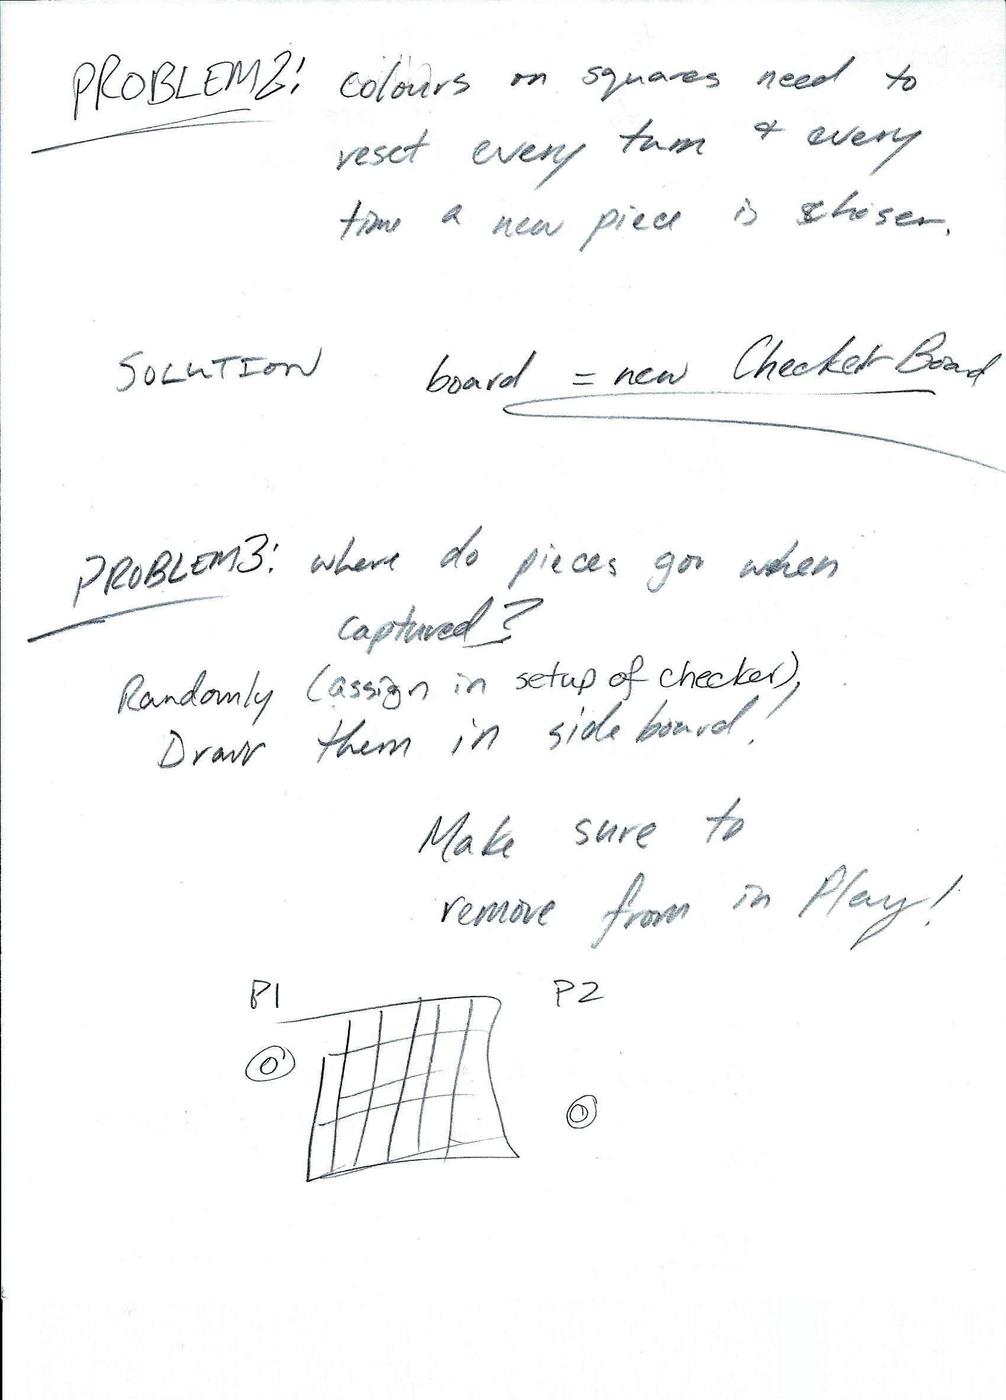 PROBLEM2: colours on squares need to
reset every turn & every
time a new piece is chosen.
SOLUTION board = new CheckerBoard
PROBLEM3: where do pieces go when
captured?
Randomly (assign in setup of checker),
Draw them in side board!
Make sure to
remove from in Play!
P1 P2